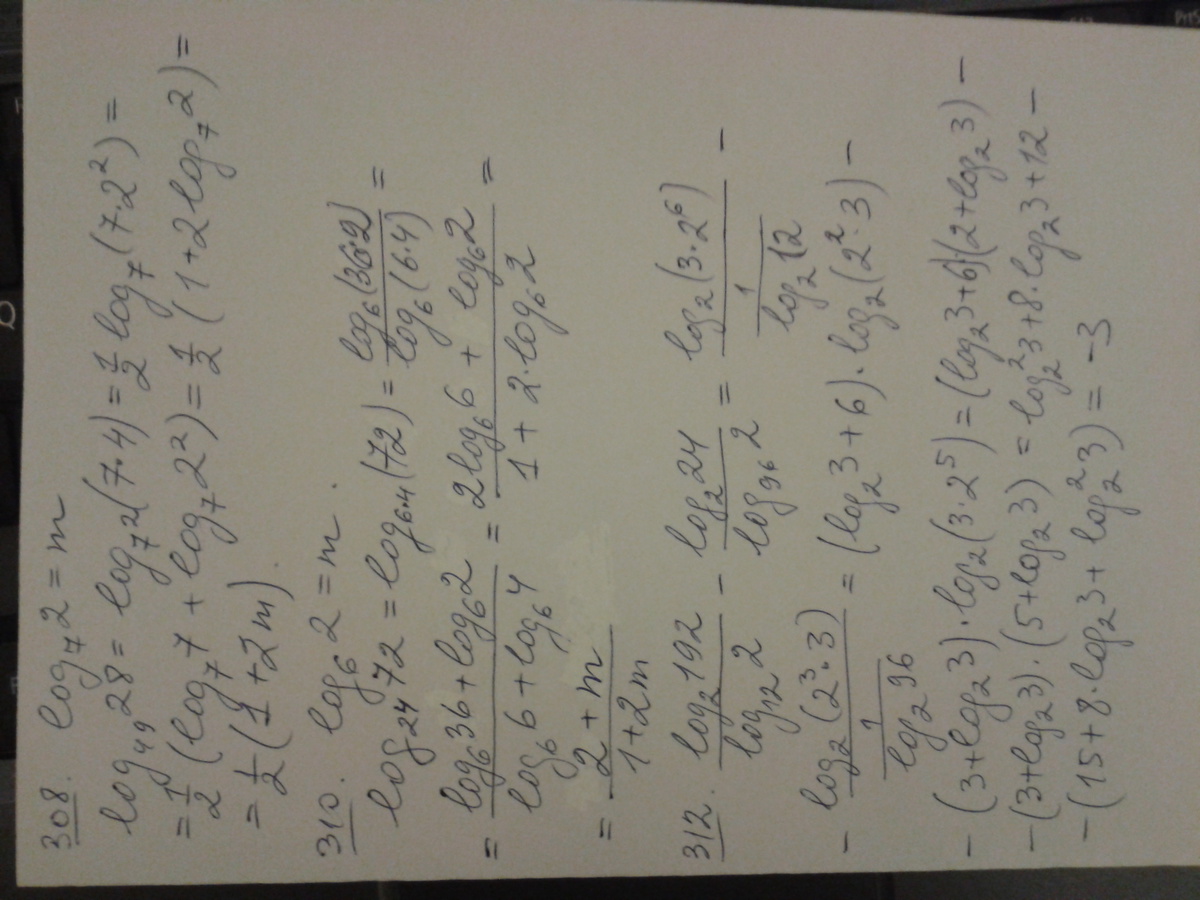 308. log₇2 = m
log₄₉28 = log₇²(7·4) = 1/2 log₇(7·2²) =
= 1/2 (log₇7 + log₇2²) = 1/2 (1+2log₇2) =
= 1/2 (1+2m).
310. log₆2 = m.
log₂₄72 = log₆.₄(72) = log₆(36·2)/log₆(6·4) =
= (log₆36 + log₆2)/(log₆6 + log₆4) = (2log₆6 + log₆2)/(1 + 2·log₆2) =
= (2+m)/(1+2m)
312. log₂192/log₁₂2 − log₂24/log₉₆2 = log₂(3·2⁶)/(1/log₂12) −
− log₂(2³·3)/(1/log₂96) = (log₂3+6)·log₂(2²·3) −
− (3+log₂3)·log₂(3·2⁵) = (log₂3+6)·(2+log₂3) −
− (3+log₂3)·(5+log₂3) = log₂²3+8·log₂3+12 −
− (15+8·log₂3+log₂²3) = −3